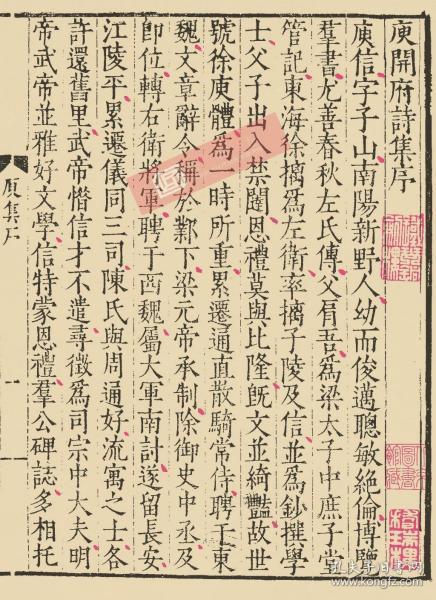 庾開府詩集序
庾信字子山南陽新野人幼而俊邁聰敏絕倫博覽
羣書尤善春秋左氏傳父肩吾爲梁太子中庶子掌
管記東海徐摛爲左衛率摛子陵及信並爲鈔撰學
士父子出入禁闥恩禮莫與比隆旣文並綺豔故世
號徐庾體爲一時所重累遷通直散騎常侍聘于東
魏文章辭令稱於鄴下梁元帝承制除御史中丞及
卽位轉右衛將軍聘于西魏屬大軍南討遂留長安
江陵平累遷儀同三司陳氏與周通好流寓之士各
許還舊里武帝惜信才不遣尋徵爲司宗中大夫明
帝武帝並雅好文學信特蒙恩禮羣公碑誌多相托
庾集序
一